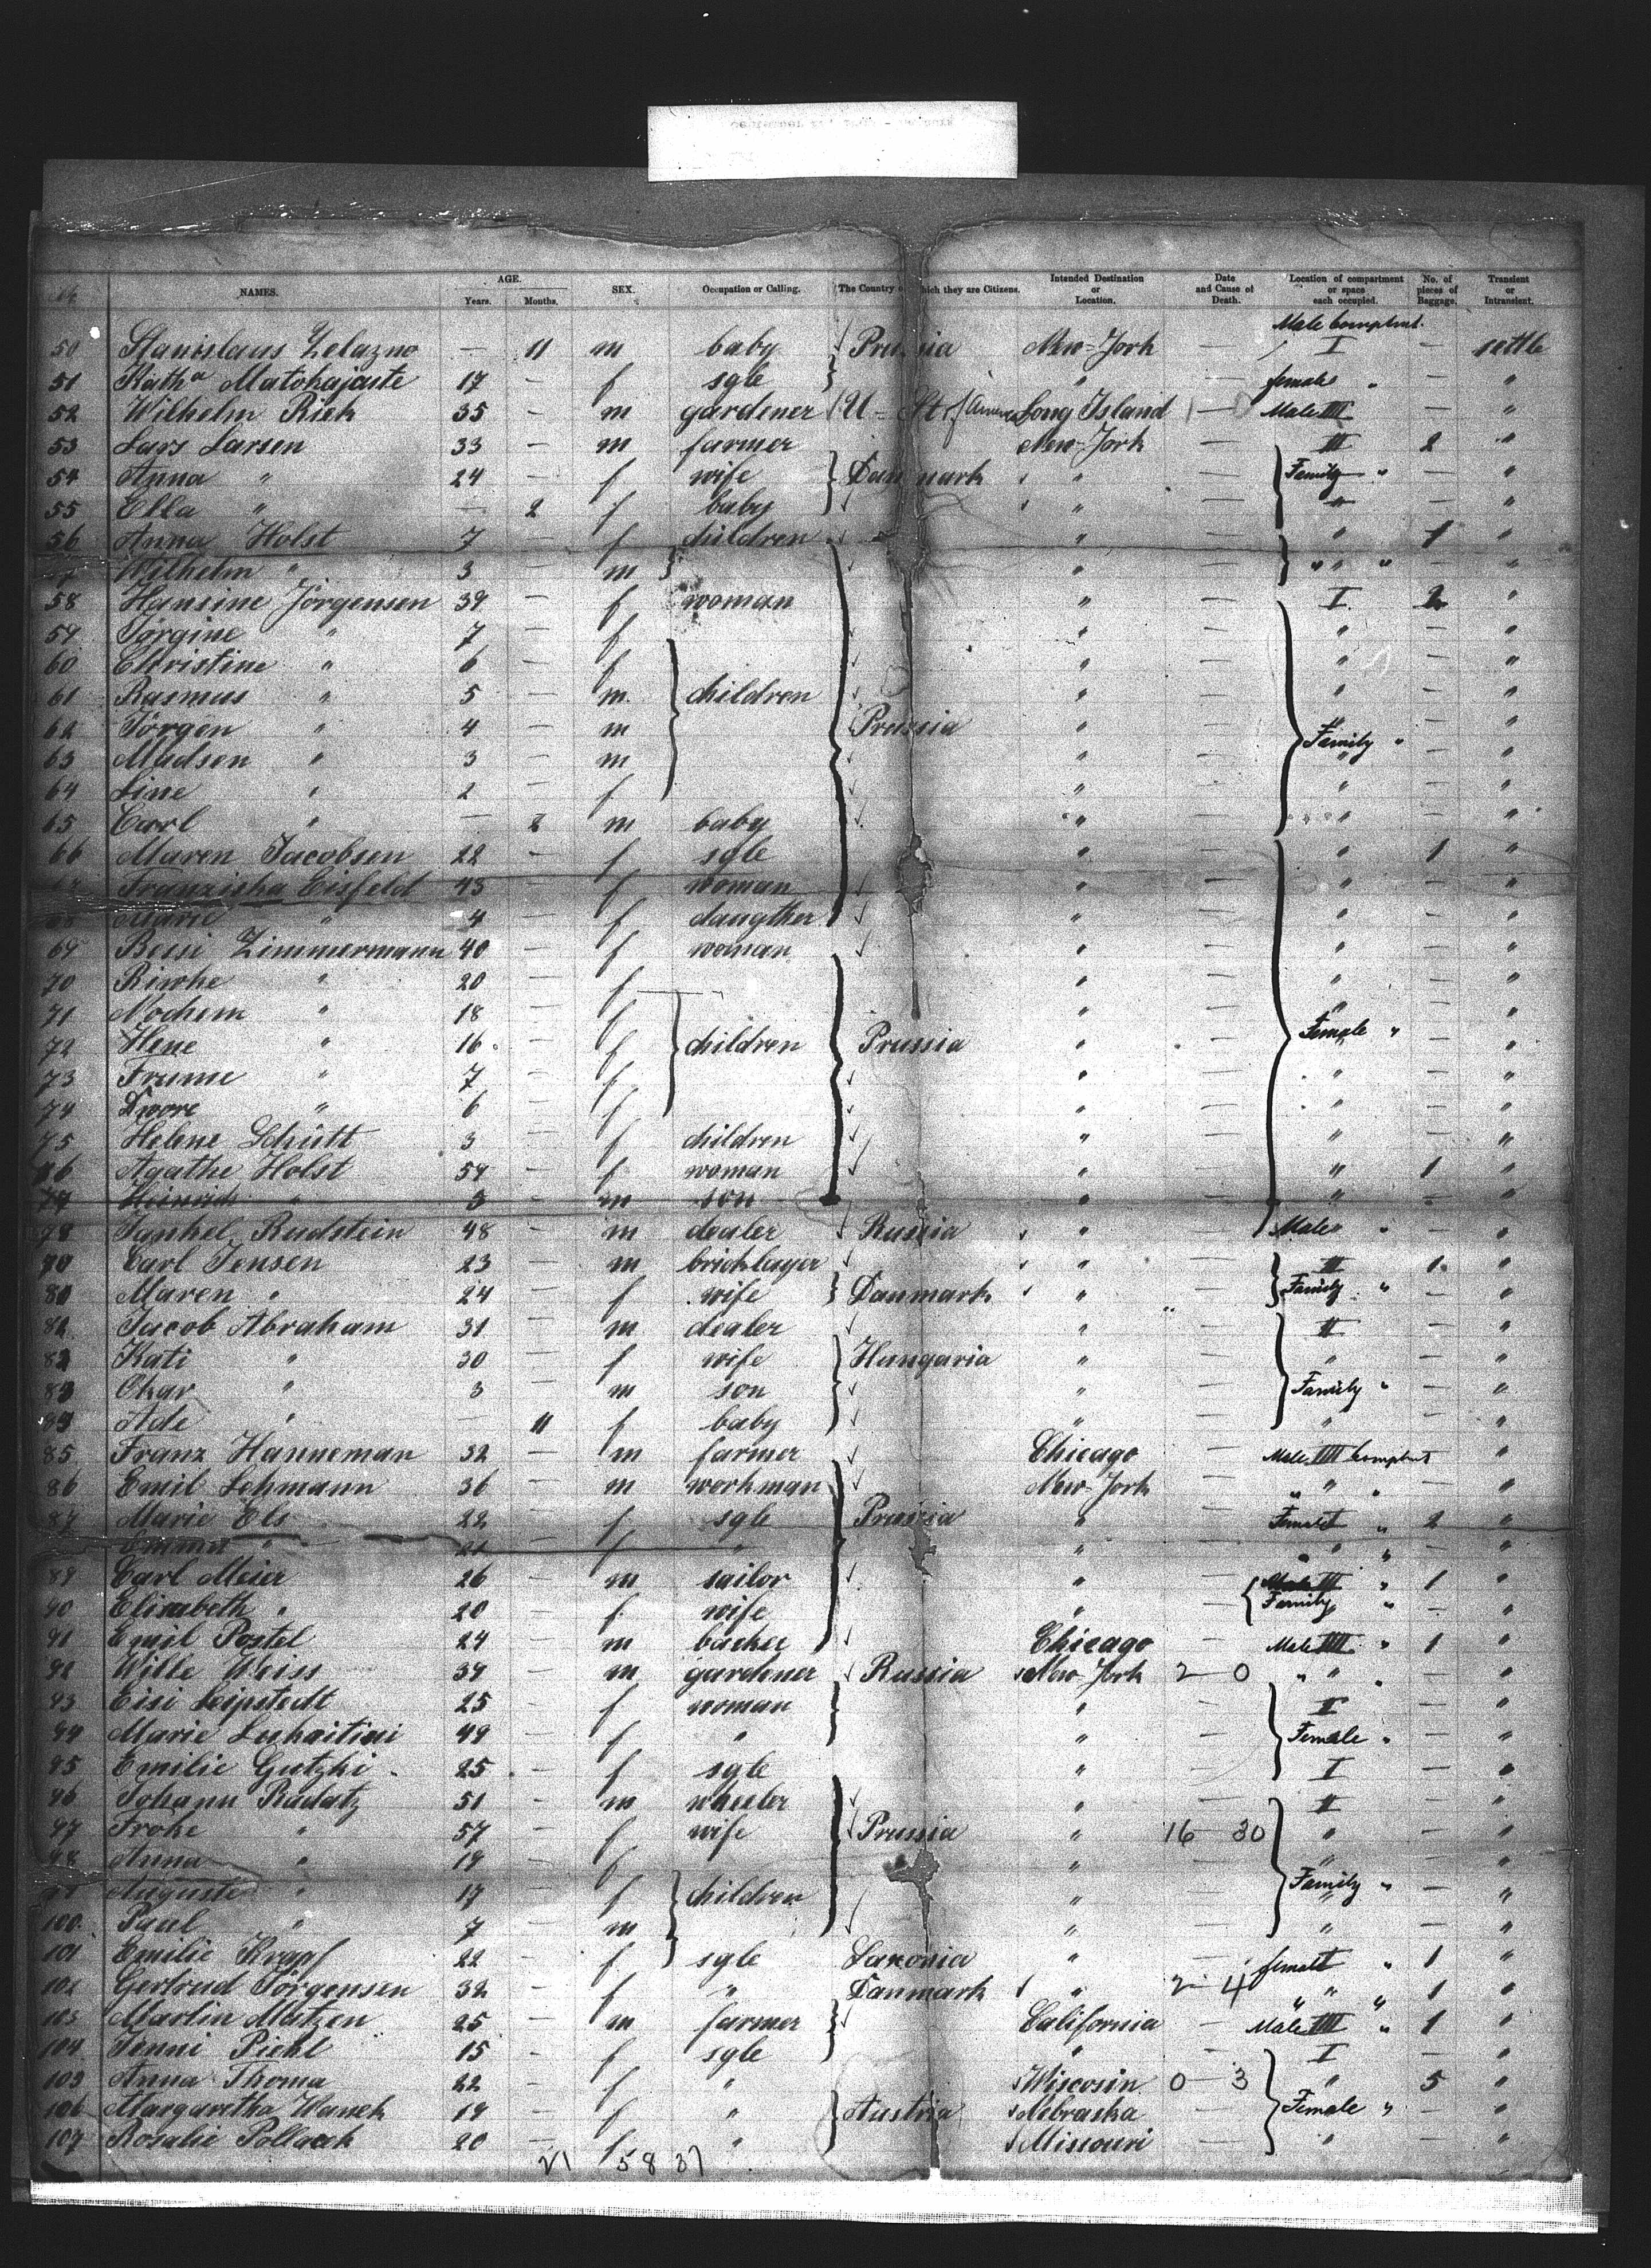 NAMES. AGE. Years. Months. SEX. Occupation or Calling. The Country of which they are Citizens. Intended Destination or Location. Date and Cause of Death. Location of compartment or space each occupied. No. of pieces of Baggage. Transient or Intransient.
Male Compbmt.
50 Stanislaus Zelazno — 11 m baby Prussia New-York — I — settle
51 Kath^a Matohajaste 17 — f sgle " — female " — "
52 Wilhelm Rieh 35 — m gardener U-St. of America Long Island — Male III — "
53 Lars Larsen 33 — m farmer New-York — III 2 "
54 Anna " 24 — f wife Danmark " — Family " — "
55 Ella " — 2 f baby " — " — "
56 Anna Holst 7 — f children " — " 1 "
Wilhelm " 3 — m " — " " — "
58 Hansine Jörgensen 39 — f woman " — I 2 "
59 Jörgine " 7 — f " — " — "
60 Christine " 6 — f " — " — "
61 Rasmus " 5 — m children " — " — "
62 Jörgen " 4 — m Prussia " — " — "
63 Madsen " 3 — m " — Family " — "
64 Line " 2 — f " — " — "
65 Carl " — 2 m baby " — " — "
66 Maren Jacobsen 22 — f sgle " — " 1 "
67 Franziska Eisfeld 43 — f woman " — " — "
68 " 4 — f daugther " — " — "
69 Bessi Zimmermann 40 — f woman " — " — "
70 Riwke " 20 — f " — " — "
71 Nochem " 18 — f " — " — "
72 Hene " 16 — f children Prussia " — Female " — "
73 Frume " 7 — f " — " — "
74 Dwore " 6 — f " — " — "
75 Helene Schütt 3 — f children " — " — "
76 Agathe Holst 54 — f woman " — " 1 "
77 Heinrich " 3 — m son " — " — "
78 Jankel Rudstein 48 — m dealer Russia " — Male " — "
80 Carl Jensen 23 — m bricklayer " — III 1 "
81 Maren " 24 — f wife Danmark " — Family " — "
82 Jacob Abraham 31 — m dealer " — II — "
83 Kati " 30 — f wife Hungaria " — " — "
83 Okar " 3 — m son " — Family " — "
84 Ade " — 11 f baby " — " — "
85 Franz Hanneman 32 — m farmer Chicago — Male IIII Compbmt "
86 Emil Lehmann 36 — m workman New-York — " " — "
87 Marie Els 22 — f sgle Prussia " — Female I " 2 "
Emma " 21 — f " " — " " — "
89 Carl Meier 26 — m sailor " — Male III " 1 "
90 Elisabeth " 20 — f wife " — Family " — "
91 Emil Postel 24 — m backer Chicago — Male IIII " 1 "
92 Wille Weiss 34 — m gardener Russia New-York 2 — 0 " " — "
93 Eisi Leipstedt 25 — f woman " — II — "
94 Marie Luhaitini 49 — f " " — Female " — "
95 Emilie Gutzki 25 — f sgle " — I — "
96 Johann Radatz 51 — m wheeler " — II — "
97 Froke " 57 — f wife Prussia " 16 — 30 " — "
98 Anna " 19 — f " — " — "
99 Auguste " 17 — f children " — Family " — "
100 Paul " 7 — m " — " — "
101 Emilie Krapf 22 — f sgle Saxonia " — female I " 1 "
102 Gertrud Jörgensen 32 — f " Danmark " 2 — 4 " " " 1 "
103 Martin Matzen 25 — m farmer California — Male IIII " 1 "
104 Jenni Piehl 15 — f sgle " — I — "
105 Anna Thoma 22 — f " Wiscosin 0 — 3 " 5 "
106 Margaretha Wanek 19 — f " Austria Nebraska — Female " — "
107 Rosalie Pollack 20 — f " Missouri — " — "
21 58 37